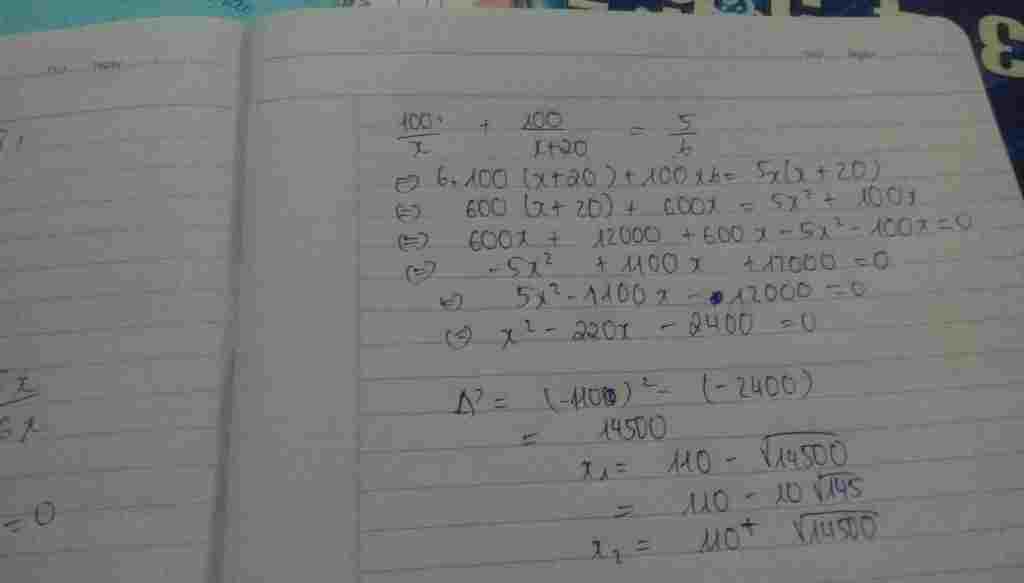 100/x + 100/x+20 = 5/6
⇔ 6.100 (x+20) + 100x6 = 5x(x+20)
⇔ 600 (x+20) + 600x = 5x² + 100x
⇔ 600x + 12000 + 600x - 5x² - 100x = 0
⇔ -5x² + 1100x + 12000 = 0
⇔ 5x² - 1100x - 12000 = 0
⇔ x² - 220x - 2400 = 0
Δ' = (-110)² - (-2400)
= 14500
x₁ = 110 - √14500
= 110 - 10√145
x₂ = 110 + √14500
= 0